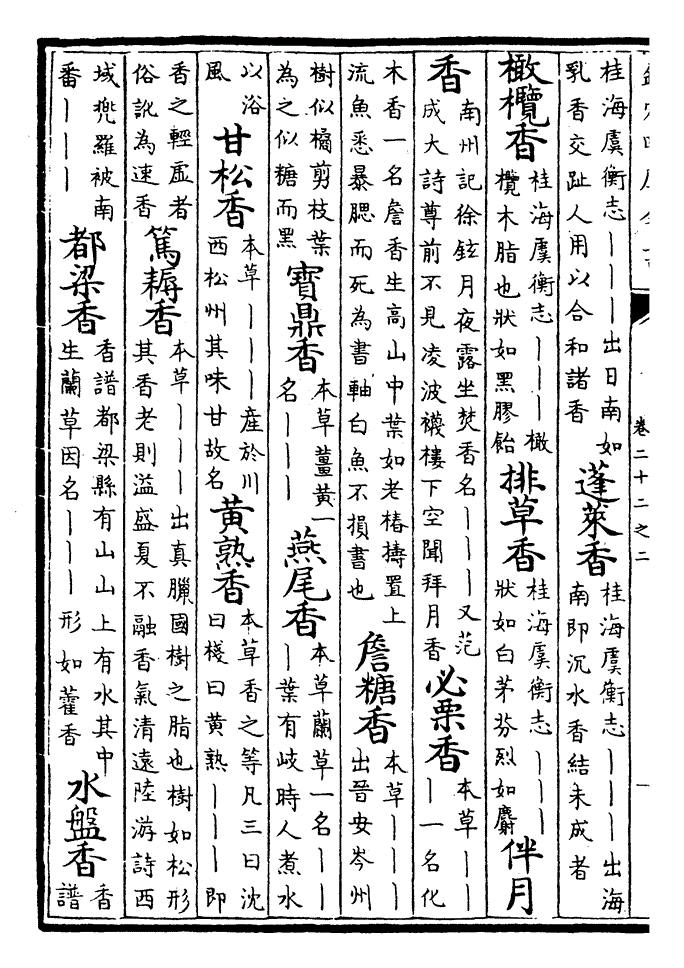 卷二十二之二
桂海虞衡志｜｜｜出日南如
乳香交趾人用以合和諸香
蓬萊香
桂海虞衡志｜｜｜出海
南即沉水香結未成者
橄欖香
桂海虞衡志｜｜｜橄
欖木脂也狀如黑膠飴
排草香
桂海虞衡志｜｜｜
狀如白茅芬烈如麝
伴月
香
南州記徐鉉月夜露坐焚香名｜｜｜又范
成大詩尊前不見凌波襪樓下空聞拜月香
必栗香
本草｜｜
｜一名化
木香一名詹香生高山中葉如老椿擣置上
流魚悉暴腮而死為書軸白魚不損書也
詹糖香
本草｜｜｜
出晉安岑州
樹似橘剪枝葉
為之似糖而黑
寶鼎香
本草薑黃一
名｜｜｜
燕尾香
本草蘭草一名｜｜
｜葉有岐時人煮水
以浴
風
甘松香
本草｜｜｜産於川
西松州其味甘故名
黄熟香
本草香之等凡三曰沈
曰棧曰黄熟｜｜｜即
香之輕虛者
俗訛為速香
篤耨香
本草｜｜｜出真臘國樹之脂也樹如松形
其香老則溢盛夏不融香氣清遠陸游詩西
域兠羅被南
番｜｜｜
都梁香
香譜都梁縣有山山上有水其中
生蘭草因名｜｜｜形如藿香
水盤香
香
譜